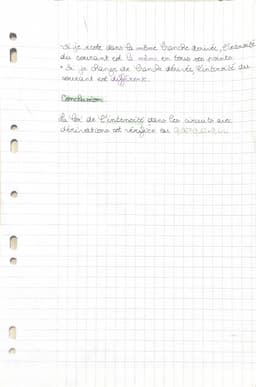 • Si je reste dans la même branche dérivée, l'intensité
du courant est la même en tous ses points.
• Si je change de branche dérivée, l'intensité du
courant est différente.
Conclusion
La loi de l'intensité dans les circuits avec
dérivations est vérifiée ou